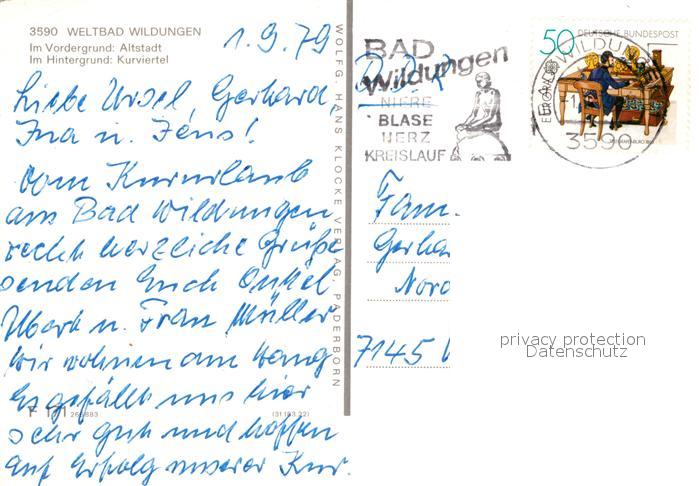 3590 WELTBAD WILDUNGEN
Im Vordergrund: Altstadt
Im Hintergrund: Kurviertel
1.9.79
Liebe Ursel, Gerhard,
Ina u. Jens!
Vom Kururlaub
aus Bad Wildungen
recht herzliche Grüße
senden Euch Onkel
u. Frau Müller
Wir wohnen am Hang
Es gefällt uns hier
sehr gut und hoffen
auf Erfolg unserer Kur.
F 171
(31 193 22)
WOLFG. HANS KLOCKE VERLAG PADERBORN
BAD
Wildungen
NIERE
BLASE
HERZ
KREISLAUF
50 DEUTSCHE BUNDESPOST
EUROPA
WILDUN
3590
Fam.
Gerha
Nord
7145
privacy protection
Datenschutz